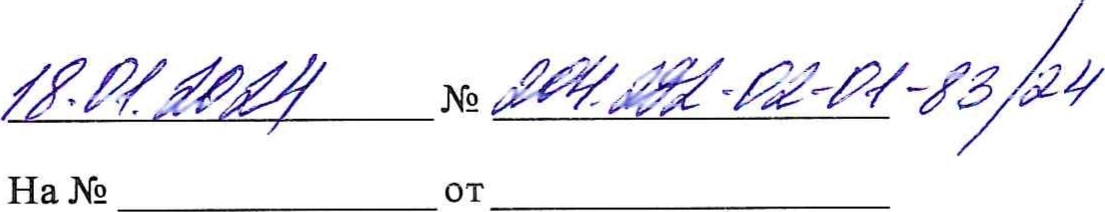 18.01.2024 № 204.202-02-01-83/24
На № от